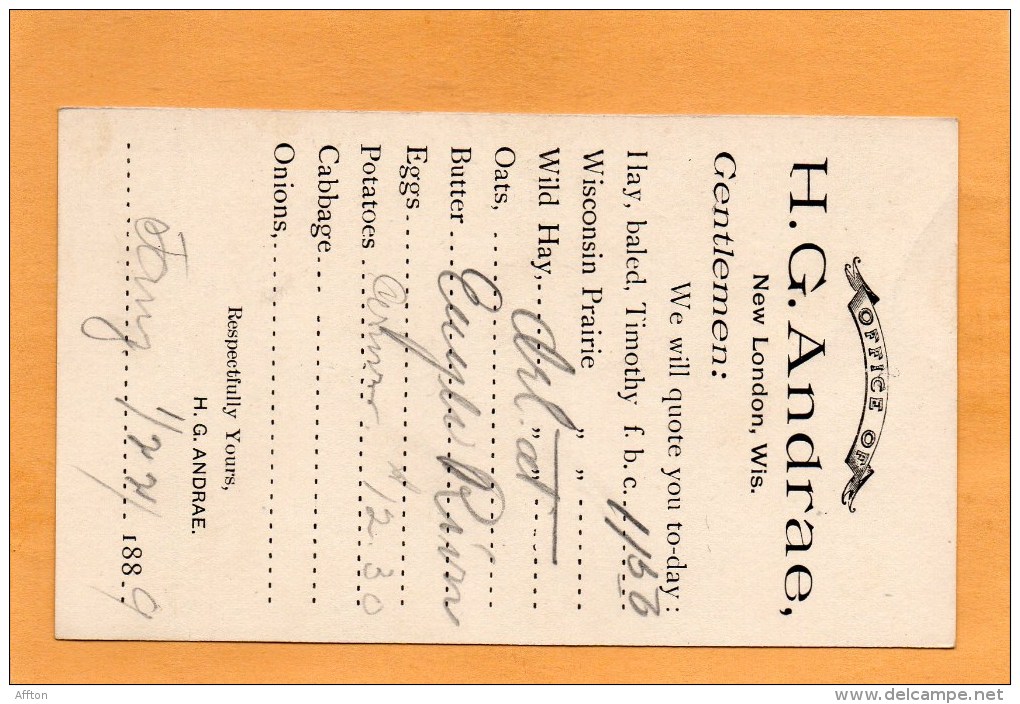 OFFICE OF
H. G. Andrae,
New London, Wis.
Gentlemen:
We will quote you to-day:
Hay, baled, Timothy f. b. c. 11 50
Wisconsin Prairie " "
Wild Hay, " "
Oats,
Butter
Eggs
Potatoes 12.30
Cabbage
Onions,
Respectfully Yours,
H. G. ANDRAE.
1889
Affton
www.delcampe.net